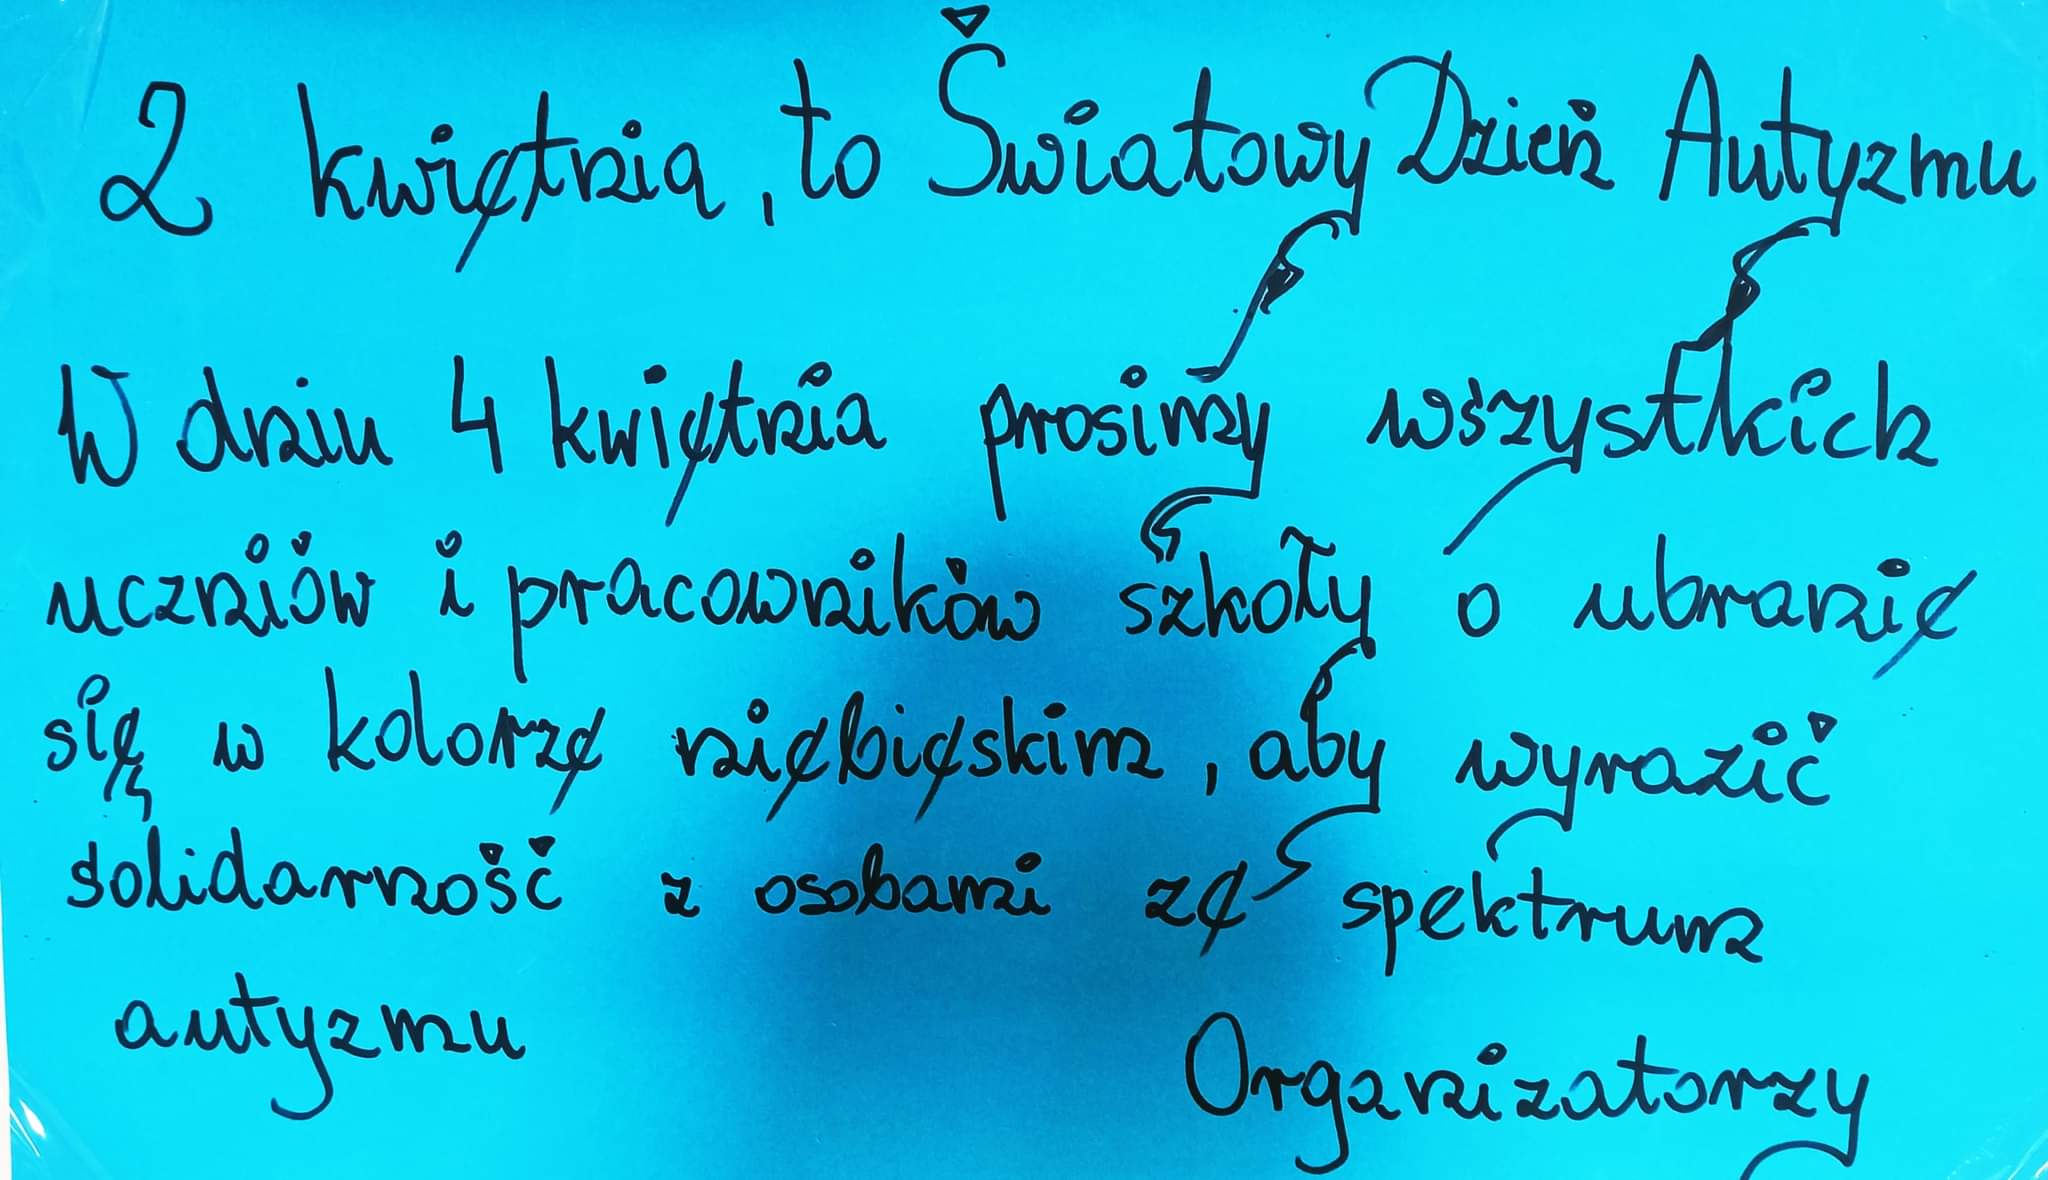 2 kwietnia, to Światowy Dzień Autyzmu
W dniu 4 kwietnia prosimy wszystkich
uczniów i pracowników szkoły o ubranie
się w kolorze niebieskim, aby wyrazić
solidarność z osobami ze spektrum
autyzmu
Organizatorzy